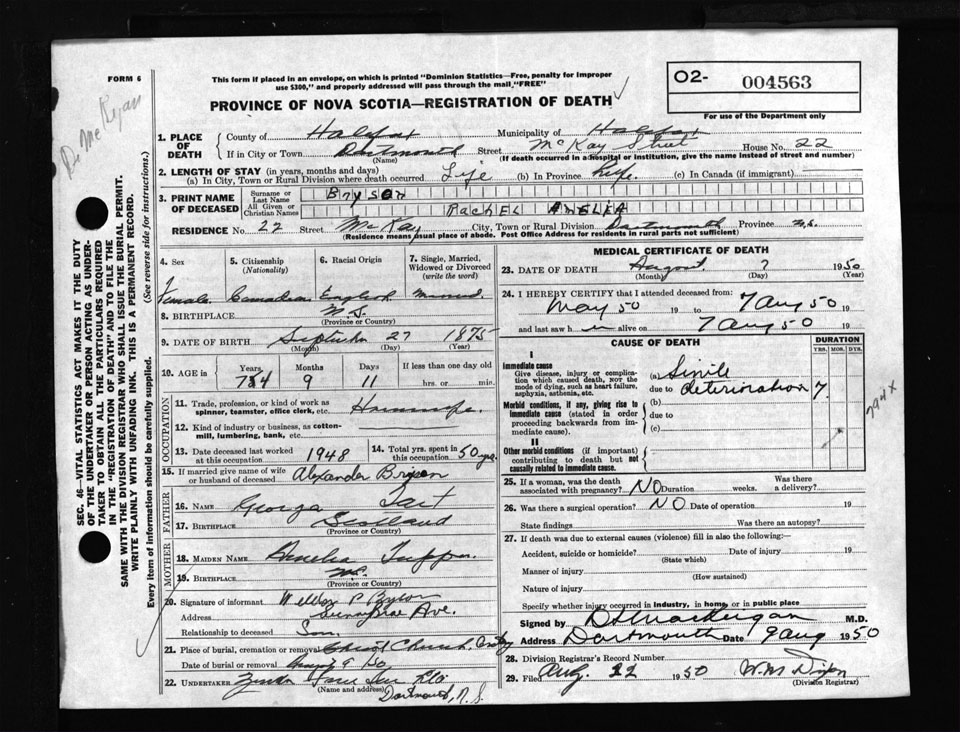 FORM 6
This form if placed in an envelope, on which is printed "Dominion Statistics—Free, penalty for improper
use $300," and properly addressed will pass through the mail, "FREE"
PROVINCE OF NOVA SCOTIA—REGISTRATION OF DEATH
O2- 004563
For use of the Department only
1. PLACE OF DEATH County of Halifax Municipality of Halifax
If in City or Town Dartmouth Street McKay Street House No. 22
(Name) (If death occurred in a hospital or institution, give the name instead of street and number)
2. LENGTH OF STAY (in years, months and days)
(a) In City, Town or Rural Division where death occurred Life (b) In Province Life (c) In Canada (if immigrant)
3. PRINT NAME OF DECEASED Surname or Last Name Bryson
All Given or Christian Names RACHEL AMELIA
RESIDENCE No. 22 Street McKay City, Town or Rural Division Dartmouth Province N.S.
(Residence means usual place of abode. Post Office Address for residents in rural parts not sufficient)
4. Sex 5. Citizenship (Nationality) 6. Racial Origin 7. Single, Married, Widowed or Divorced (write the word)
Female Canadian English
8. BIRTHPLACE N.S.
(Province or Country)
9. DATE OF BIRTH September 27 1875
(Month) (Day) (Year)
10. AGE in Years Months Days If less than one day old
9 11 hrs. or min.
OCCUPATION
11. Trade, profession, or kind of work as spinner, teamster, office clerk, etc. Housewife.
12. Kind of industry or business, as cotton-mill, lumbering, bank, etc.
13. Date deceased last worked at this occupation 1948 14. Total yrs. spent in this occupation 50 yrs.
15. If married give name of wife or husband of deceased Alexander Bryson
FATHER
16. NAME George Tait
17. BIRTHPLACE Scotland
(Province or Country)
MOTHER
18. MAIDEN NAME Amelia Tupper
19. BIRTHPLACE N.S.
(Province or Country)
20. Signature of informant P. Bryson
Address Sunnybrae Ave.
Relationship to deceased Son.
21. Place of burial, cremation or removal Christ Church
Date of burial or removal Aug 9 50
22. UNDERTAKER
(Name and address) Dartmouth, N.S.
MEDICAL CERTIFICATE OF DEATH
23. DATE OF DEATH August 7 1950
(Month) (Day) (Year)
24. I HEREBY CERTIFY that I attended deceased from:
May 50 19 to 7 Aug 50 19
and last saw h er alive on 7 Aug 50 19
CAUSE OF DEATH DURATION
YRS. MOS. DYS.
I
Immediate cause
Give disease, injury or complication which caused death, NOT the mode of dying, such as heart failure, asphyxia, asthenia, etc.
(a) Sinile
due to deterioration
Morbid conditions, if any, giving rise to immediate cause (stated in order proceeding backwards from immediate cause).
(b)
due to
(c)
II
Other morbid conditions (if important) contributing to death but not causally related to immediate cause.
25. If a woman, was the death associated with pregnancy? NO Duration weeks. Was there a delivery?
26. Was there a surgical operation? NO Date of operation 19
State findings Was there an autopsy?
27. If death was due to external causes (violence) fill in also the following:—
Accident, suicide or homicide? Date of injury 19
(State which)
Manner of injury
(How sustained)
Nature of injury
Specify whether injury occurred in industry, in home, or in public place
Signed by M.D.
Address Dartmouth Date 9 Aug 1950
28. Division Registrar's Record Number
29. Filed Aug. 22 1950 W. M. Dixon
(Division Registrar)
SEC. 46—VITAL STATISTICS ACT MAKES IT THE DUTY
OF THE UNDERTAKER OR PERSON ACTING AS UNDER-
TAKER TO OBTAIN ALL THE PARTICULARS REQUIRED
IN THE "REGISTRATION OF DEATH" AND TO FILE THE
SAME WITH THE DIVISION REGISTRAR WHO SHALL ISSUE THE BURIAL PERMIT.
WRITE PLAINLY WITH UNFADING INK. THIS IS A PERMANENT RECORD.
Every item of information should be carefully supplied. (See reverse side for instructions.)